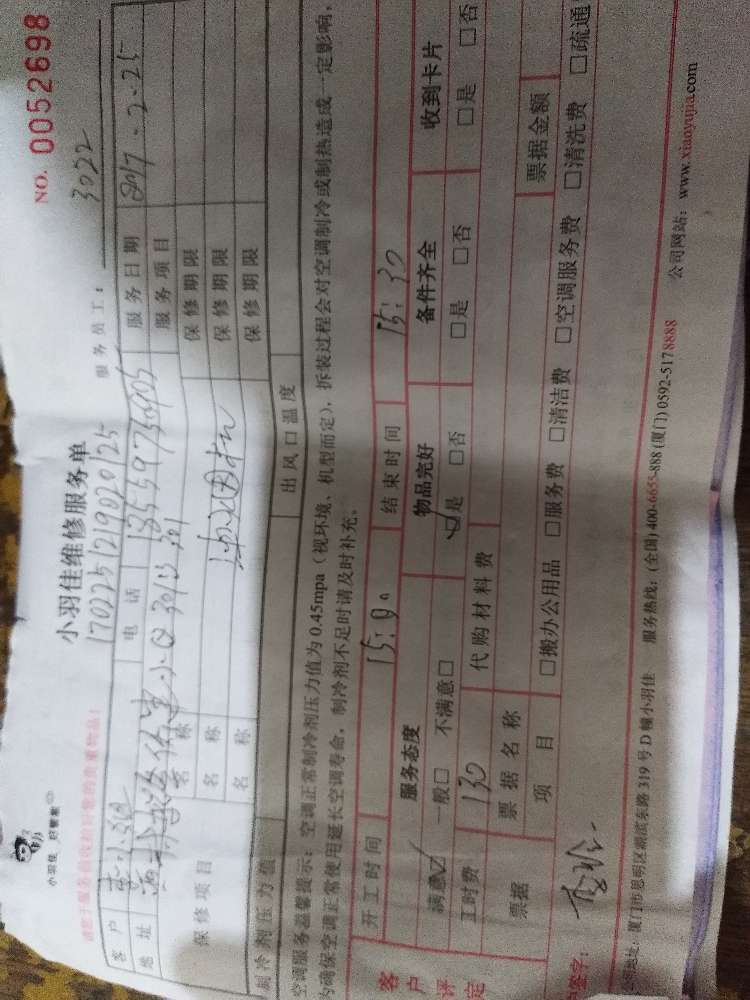 小羽佳 好管家
小羽佳维修服务单
NO. 0052698
1702251219020125
服务员工: 3022
客户
电话 13559750905
服务日期 2017-2-25
地址
服务项目
保修项目
名称
保修期限
名称
保修期限
名称
保修期限
制冷剂压力值
出风口温度
空调服务温馨提示:空调正常制冷剂压力值为0.45mpa(视环境、机型而定),拆装过程会对空调制冷或制热造成一定影响,
为确保空调正常使用延长空调寿命,制冷剂不足时请及时补充。
客户评定
开工时间
结束时间 15:30
服务态度
物品完好
备件齐全
收到卡片
满意☑ 一般□ 不满意□
☑是 □否
□是 □否
□是 □否
工时费 130
代购材料费
票据
票据名称
票据金额
项目
□搬办公用品 □服务费 □清洁费 □空调服务费 □清洗费 □疏通
签字:
地址:厦门市思明区湖滨东路319号D幢小羽佳 服务热线:(全国)400-6655-888 (厦门)0592-5178888 公司网站:www.xiaoyujia.com